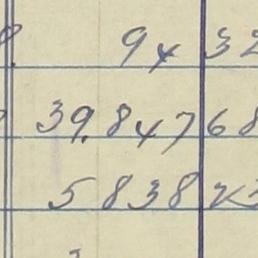 94 32
39.847 68
5838 23